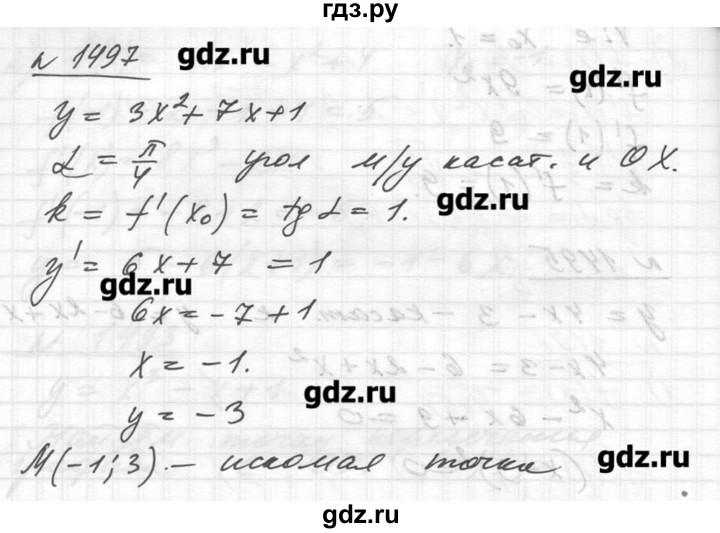 гдз.ру
№ 1497 gdz.ru
gdz.ru
y = 3x² + 7x + 1
α = π/4 угол м/у касат. и OX.
gdz.ru
k = f'(x₀) = tg α = 1.
y' = 6x + 7 = 1
gdz.ru
6x = -7 + 1
x = -1.
gdz.ru
y = -3
M(-1; 3). - искомая точка gdz.ru
gdz.ru